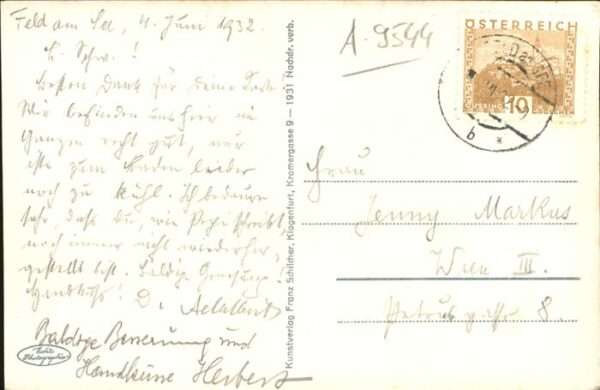 Feld am See, 4. Juni 1932.
L. Schw.!
Besten Dank für Deine Karte!
Wir befinden uns hier im
Ganzen recht gut, nur
ists zum Baden leider
noch zu kühl. Ich bedaure
sehr, dass Du, wie Pepi schreibt,
noch immer nicht wiederher-
gestellt bist. Baldige Genesung!
Handkuss! D.
Baldige Besserung und
Handküsse Herbert
Echte Photographie
Kunstverlag Franz Schilcher, Klagenfurt, Kramergasse 9 — 1931 Nachdr. verb.
A-9544
ÖSTERREICH
10
b *
Frau
Jenny Markus
Wien III.
Petrusgasse 8.